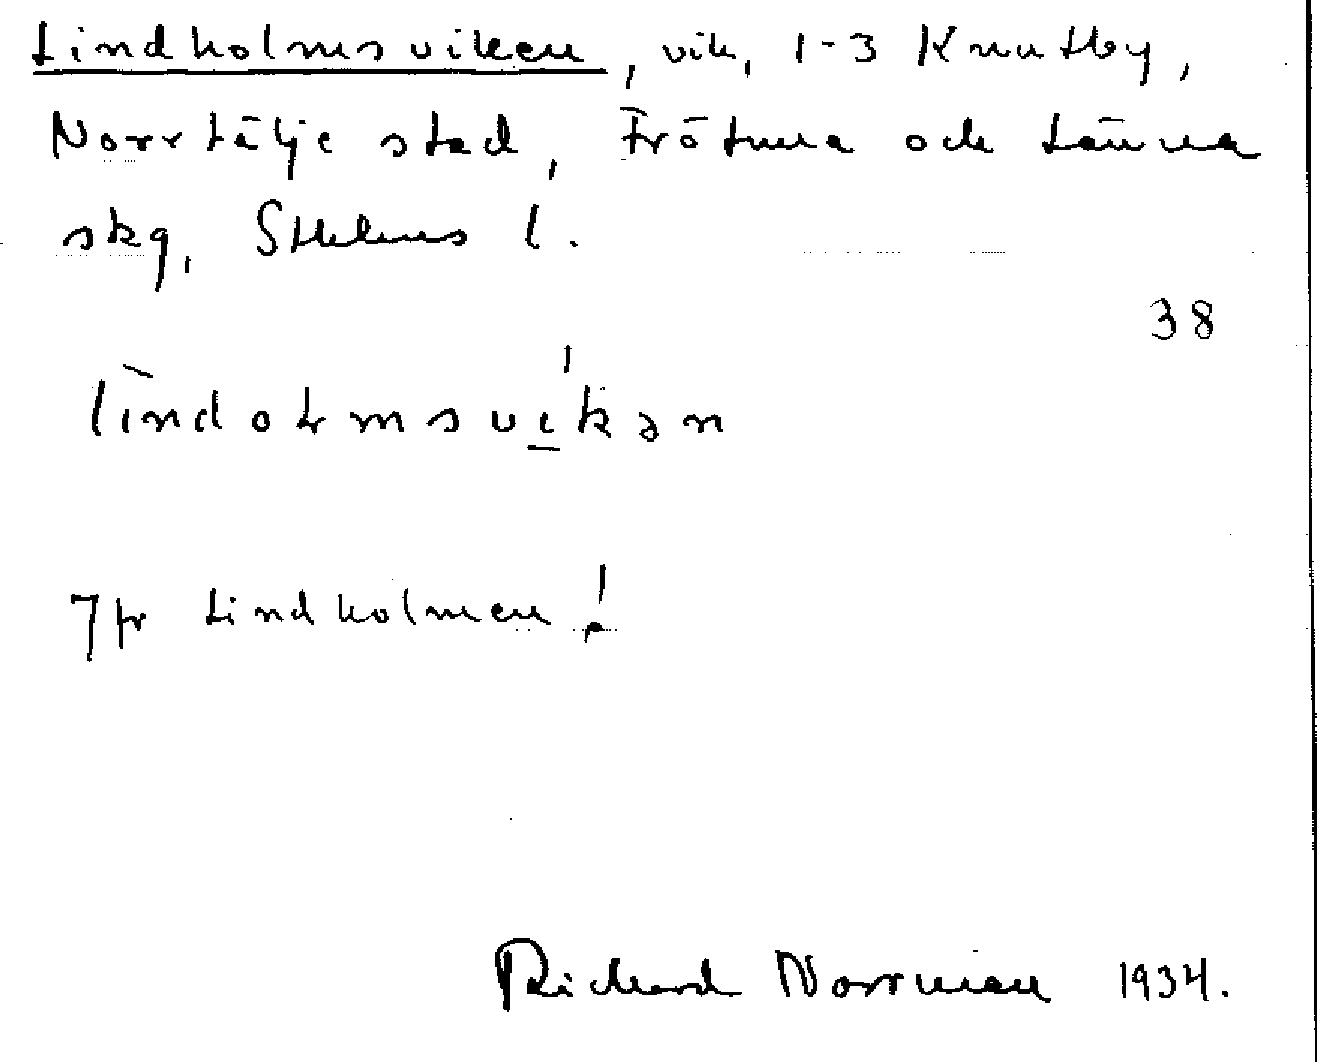 Lindholmsviken, vik, 1-3 Knutby,
Norrtälje stad, Frötuna och Länna
skg, Sthlms l.
38
lìndoɫmsvi̲ˈkən
Jfr Lindholmen!
Richard Norrman 1934.